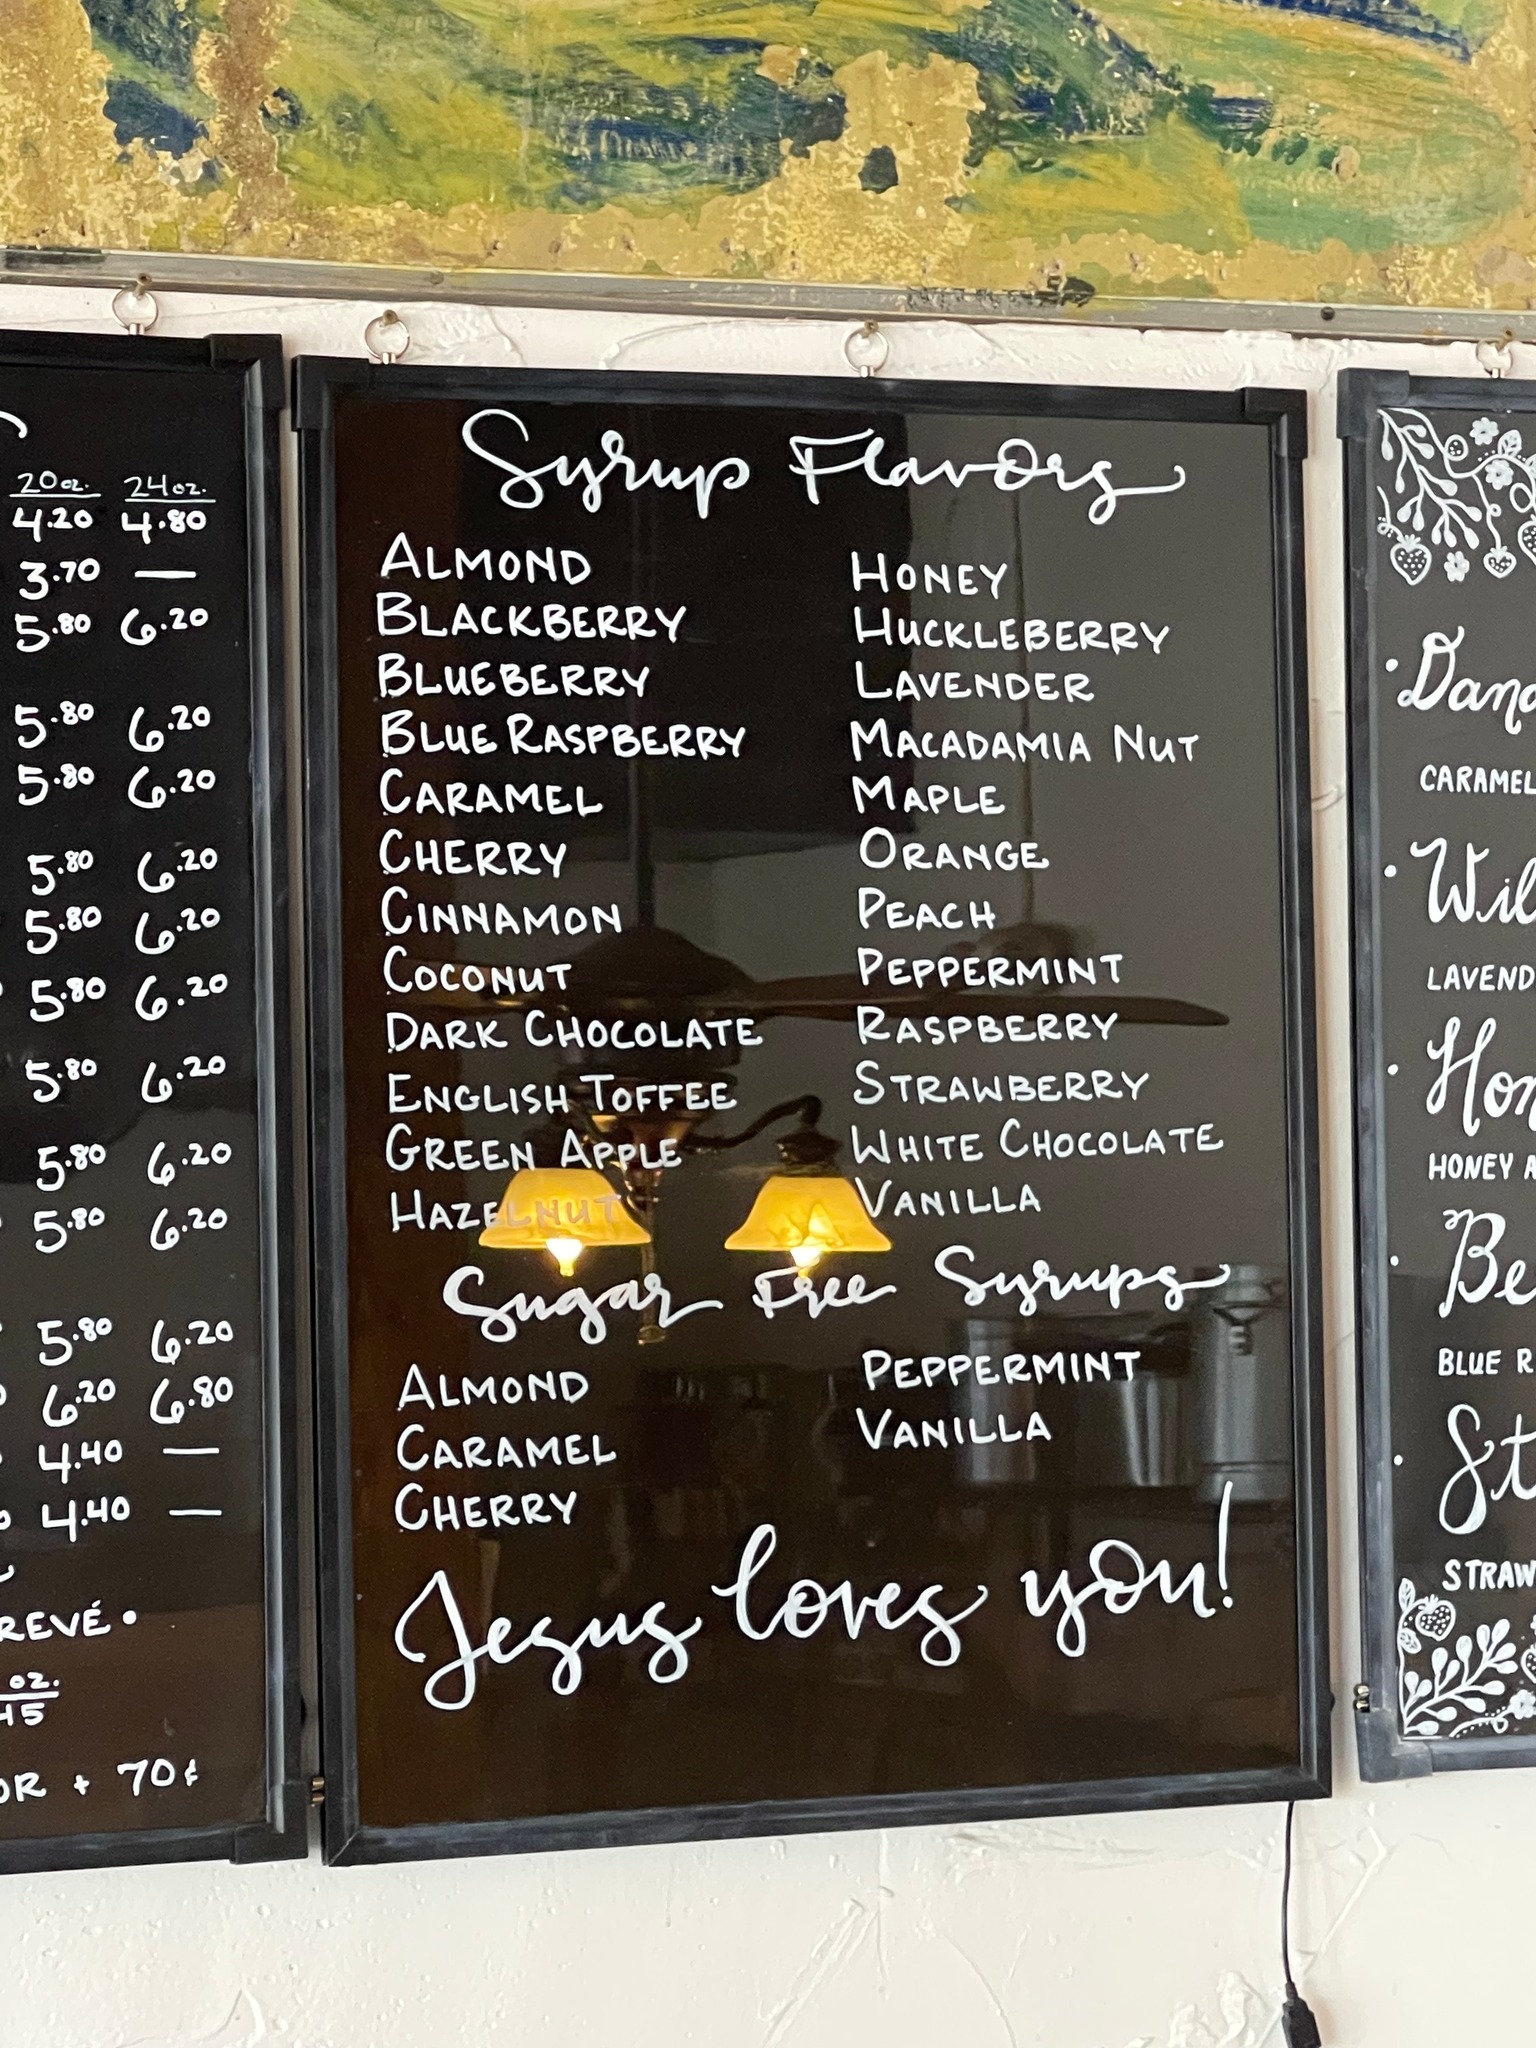 20oz. 24oz.
4.20 4.80
3.70 —
5.80 6.20
5.80 6.20
5.80 6.20
5.80 6.20
5.80 6.20
5.80 6.20
5.80 6.20
5.80 6.20
5.80 6.20
5.80 6.20
6.20 6.80
4.40 —
4.40 —
REVÉ •
oz.
45
OR + 70¢
Syrup Flavors
ALMOND
BLACKBERRY
BLUEBERRY
BLUE RASPBERRY
CARAMEL
CHERRY
CINNAMON
COCONUT
DARK CHOCOLATE
ENGLISH TOFFEE
GREEN APPLE
HAZELNUT
HONEY
HUCKLEBERRY
LAVENDER
MACADAMIA NUT
MAPLE
ORANGE
PEACH
PEPPERMINT
RASPBERRY
STRAWBERRY
WHITE CHOCOLATE
VANILLA
Sugar Free Syrups
ALMOND
CARAMEL
CHERRY
PEPPERMINT
VANILLA
Jesus loves you!
• Dand
CARAMEL
• Wil
LAVEND
• Hon
HONEY A
• Be
BLUE R
• St
STRAW